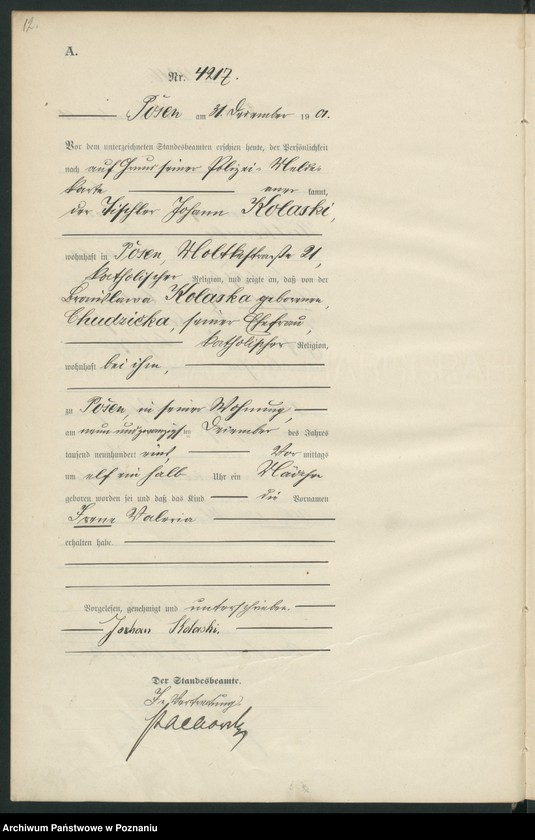 12.
A.
Nr. 4217.
Posen am 31. Dezember 1901.
Vor dem unterzeichneten Standesbeamten erschien heute, der Persönlichkeit
nach auf Grund seiner Polizei-Melde-
karte anerkannt,
der Tischler Johann Kolaski,
wohnhaft in Posen, Moltkestraße 21,
katholischer Religion, und zeigte an, daß von der
Bronislawa Kolaska geborenen
Chudzicka, seiner Ehefrau,
katholischer Religion,
wohnhaft bei ihm,
zu Posen, in seiner Wohnung,
am neun und zwanzigsten Dezember des Jahres
tausend neunhundert eins, Vormittags
um elf ein halb Uhr ein Mädchen
geboren worden sei und daß das Kind die Vornamen
Irene Valeria
erhalten habe.
Vorgelesen, genehmigt und unterschrieben.
Johan Kolaski.
Der Standesbeamte.
In Vertretung.
Archiwum Państwowe w Poznaniu